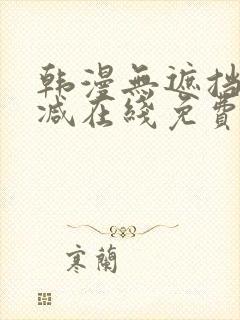 韩漫無遮挡
减在綫免費
寒蘭